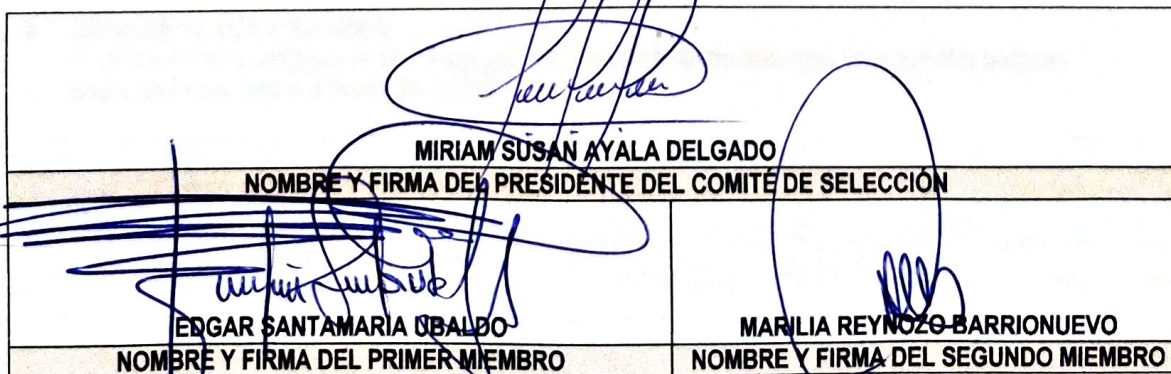 MIRIAM SUSAN AYALA DELGADO
NOMBRE Y FIRMA DEL PRESIDENTE DEL COMITÉ DE SELECCIÓN
EDGAR SANTAMARIA UBALDO
NOMBRE Y FIRMA DEL PRIMER MIEMBRO
MARILIA REYNOZO BARRIONUEVO
NOMBRE Y FIRMA DEL SEGUNDO MIEMBRO